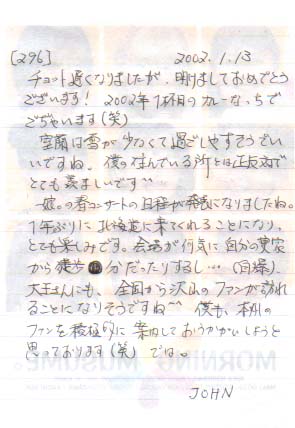 [296] 2002.1.13
チョット遅くなりましたが、明けましておめでとう
ございます! 2002年1杯目のカレーなっちで
ございます(笑)
室蘭は雪が少なくて過ごしやすそうでい
いですね。僕の住んでいる所とは正反対で
とても羨ましいです^^
の春コンサートの日程が発表になりましたね。
1年ぶりに北海道に来てくれることになり、
とても楽しみです。会場が何気に自分の実家
から徒歩 分だったりするし…(自爆)
大王さんにも、全国から沢山のファンが訪れ
ることになりそうですね^^ 僕も、本州の
ファンを積極的に案内しておうかがいしようと
思っております(笑) では。
JOHN
MORNING MUSUME。